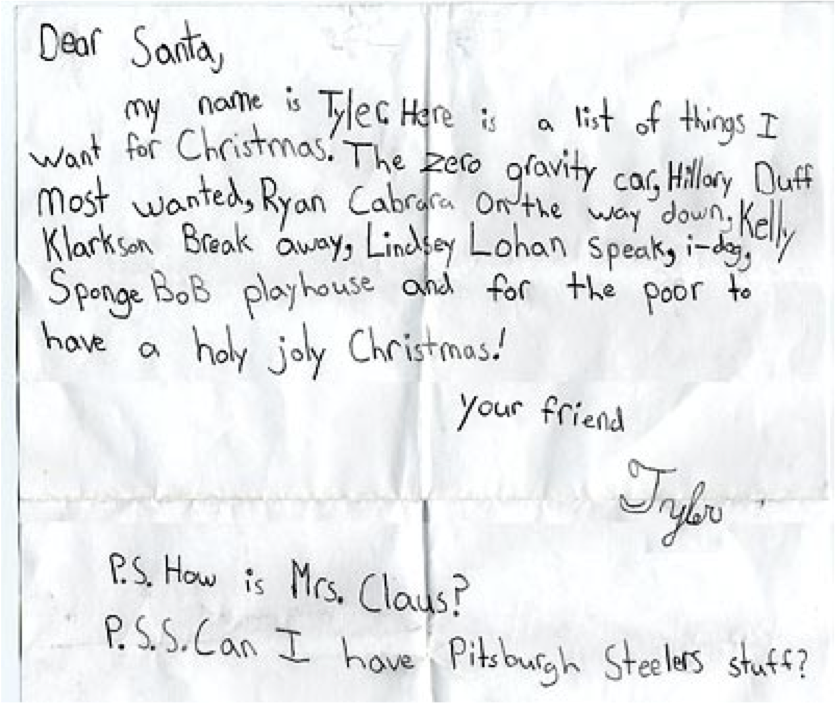 Dear Santa,
my name is Tyler. Here is a list of things I
want for Christmas. The zero gravity car, Hillary Duff
Most wanted, Ryan Cabrara On the way down, Kelly
Klarkson Break away, Lindsey Lohan speak, i-dog,
Sponge BoB playhouse and for the poor to
have a holy joly Christmas!
your friend
Tyler
P.S. How is Mrs. Claus?
P.S.S. Can I have Pitsburgh Steelers stuff?